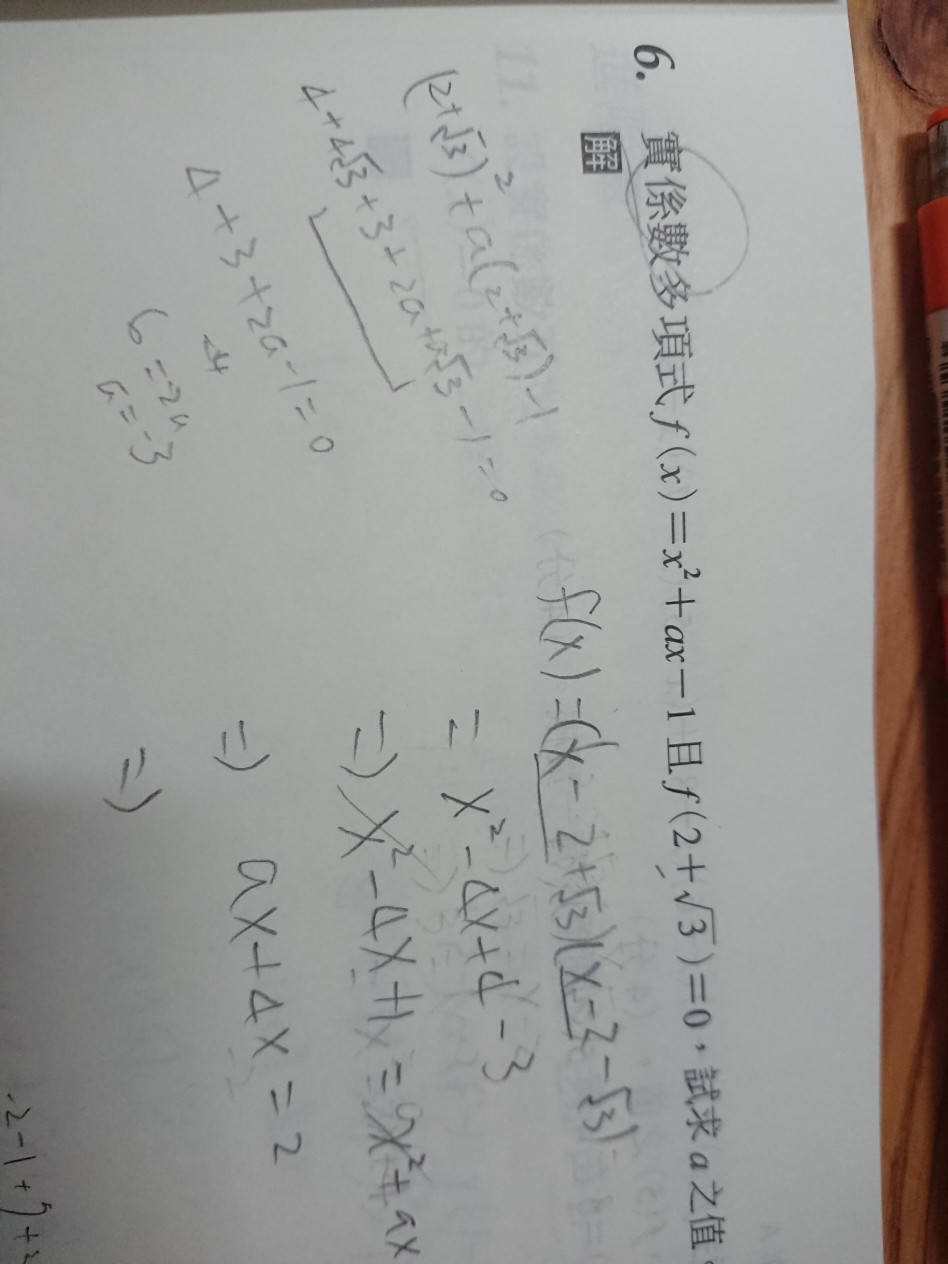 6. 實係數多項式 f(x)=x²+ax-1且f(2+√3)=0，試求a之值。
解
(2+√3)²+a(2+√3)-1
4+4√3+3+2a+a√3-1=0
4+3+2a-1=0
6=-2a
a=-3
f(x)=(x-2+√3)(x-2-√3)
= x²-4x+4-3
=) x²-4x+1=x²+ax
=) ax+4x=2
=)
-2-1+